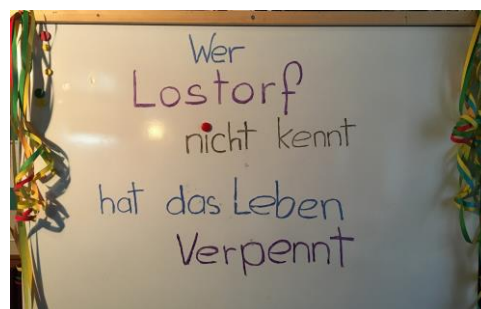 Wer
Lostorf
nicht kennt
hat das Leben
Verpennt